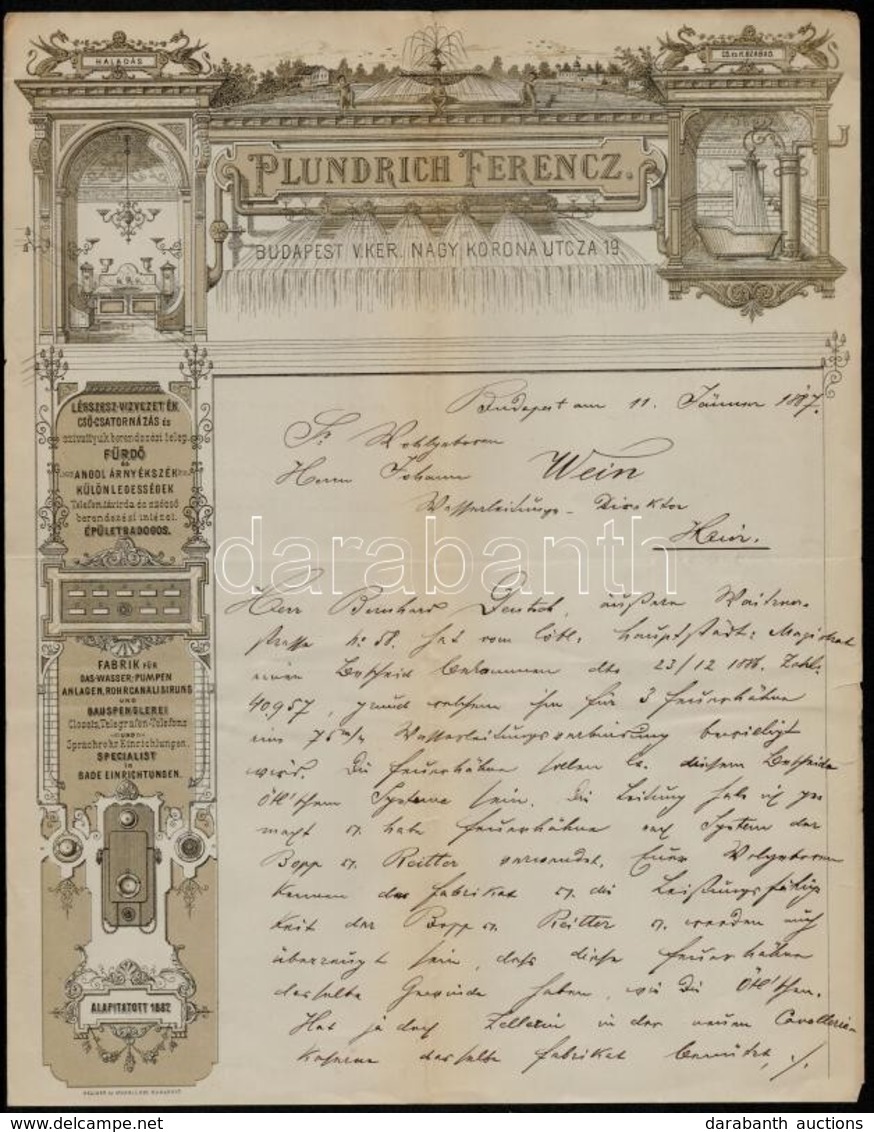 HALADÁS
CS. és K. SZABAD.
PLUNDRICH FERENCZ.
BUDAPEST V.KER. NAGY KORONA UTCZA 19.
LÉGSZESZ-VIZVEZETÉK
CSŐCSATORNÁZÁS és
szivattyuk berendezési telep.
FÜRDŐ
és
ANGOL ÁRNYÉKSZÉK
KÜLÖNLEGESSÉGEK
Telefon, távirda és szócső
berendezési intézet.
ÉPÜLETBÁDOGOS.
FABRIK FÜR
GAS-WASSER-PUMPEN
ANLAGEN, ROHRCANALISIRUNG
UND
BAUSPENGLEREI
Closets, Telegrafen-Telefons
UND
Sprachrohr Einrichtungen.
SPECIALIST
in
BADE EINRICHTUNGEN.
ALAPITATOTT 1882
Budapest am 11. Jänner 1887.
Sr Wohlgeboren
Herrn Johann Wein
Wasserleitungs-Direktor
Hier.
Herr Bernhard Deutsch, äußere Waitzner
strasse No 58. hat vom löbl. hauptstädt: Magistrat
einen Bescheid bekommen dto 23/12 1886. Zahl:
40957, grund welchem ihm für 3 Feuerhähne
eine 75 m/m Wasserleitungsverbindung bewilligt
wird. Die Feuerhähne sollen lt. diesem Bescheide
Öhl'schem Systeme sein. Die Leitung habe ich ge
macht u. habe Feuerhähne nach System der
Bopp u. Reitter verwendet. Euer Wolgeboren
kennen das Fabrikat u. die Leistungsfähig
keit der Bopp u. Reitter u. werden auch
überzeugt sein, dass diese Feuerhähne
dasselbe Gewinde haben, wie die Öhl'schen.
Hat ja doch Zellerin in der neuen Cavallerie-
Kaserne dasselbe Fabrikat benützt, ./.
darabanth
darabanth auctions